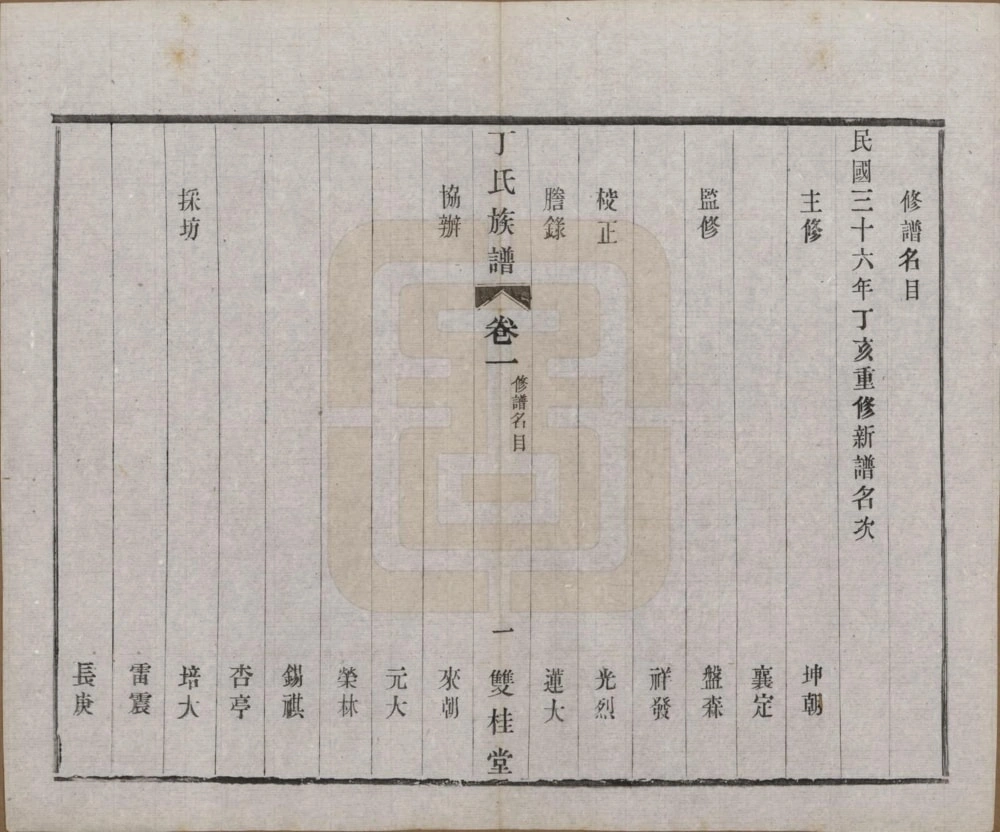 修譜名目
民國三十六年丁亥重修新譜名次
主修 坤朝
襄定
監修 盤森
祥發
校正 光烈
謄錄 蓮大
丁氏族譜 卷一 修譜名目 一 雙桂堂
協辦 來朝
元大
榮林
錫祺
杏亭
採坊 培大
雷震
長庚